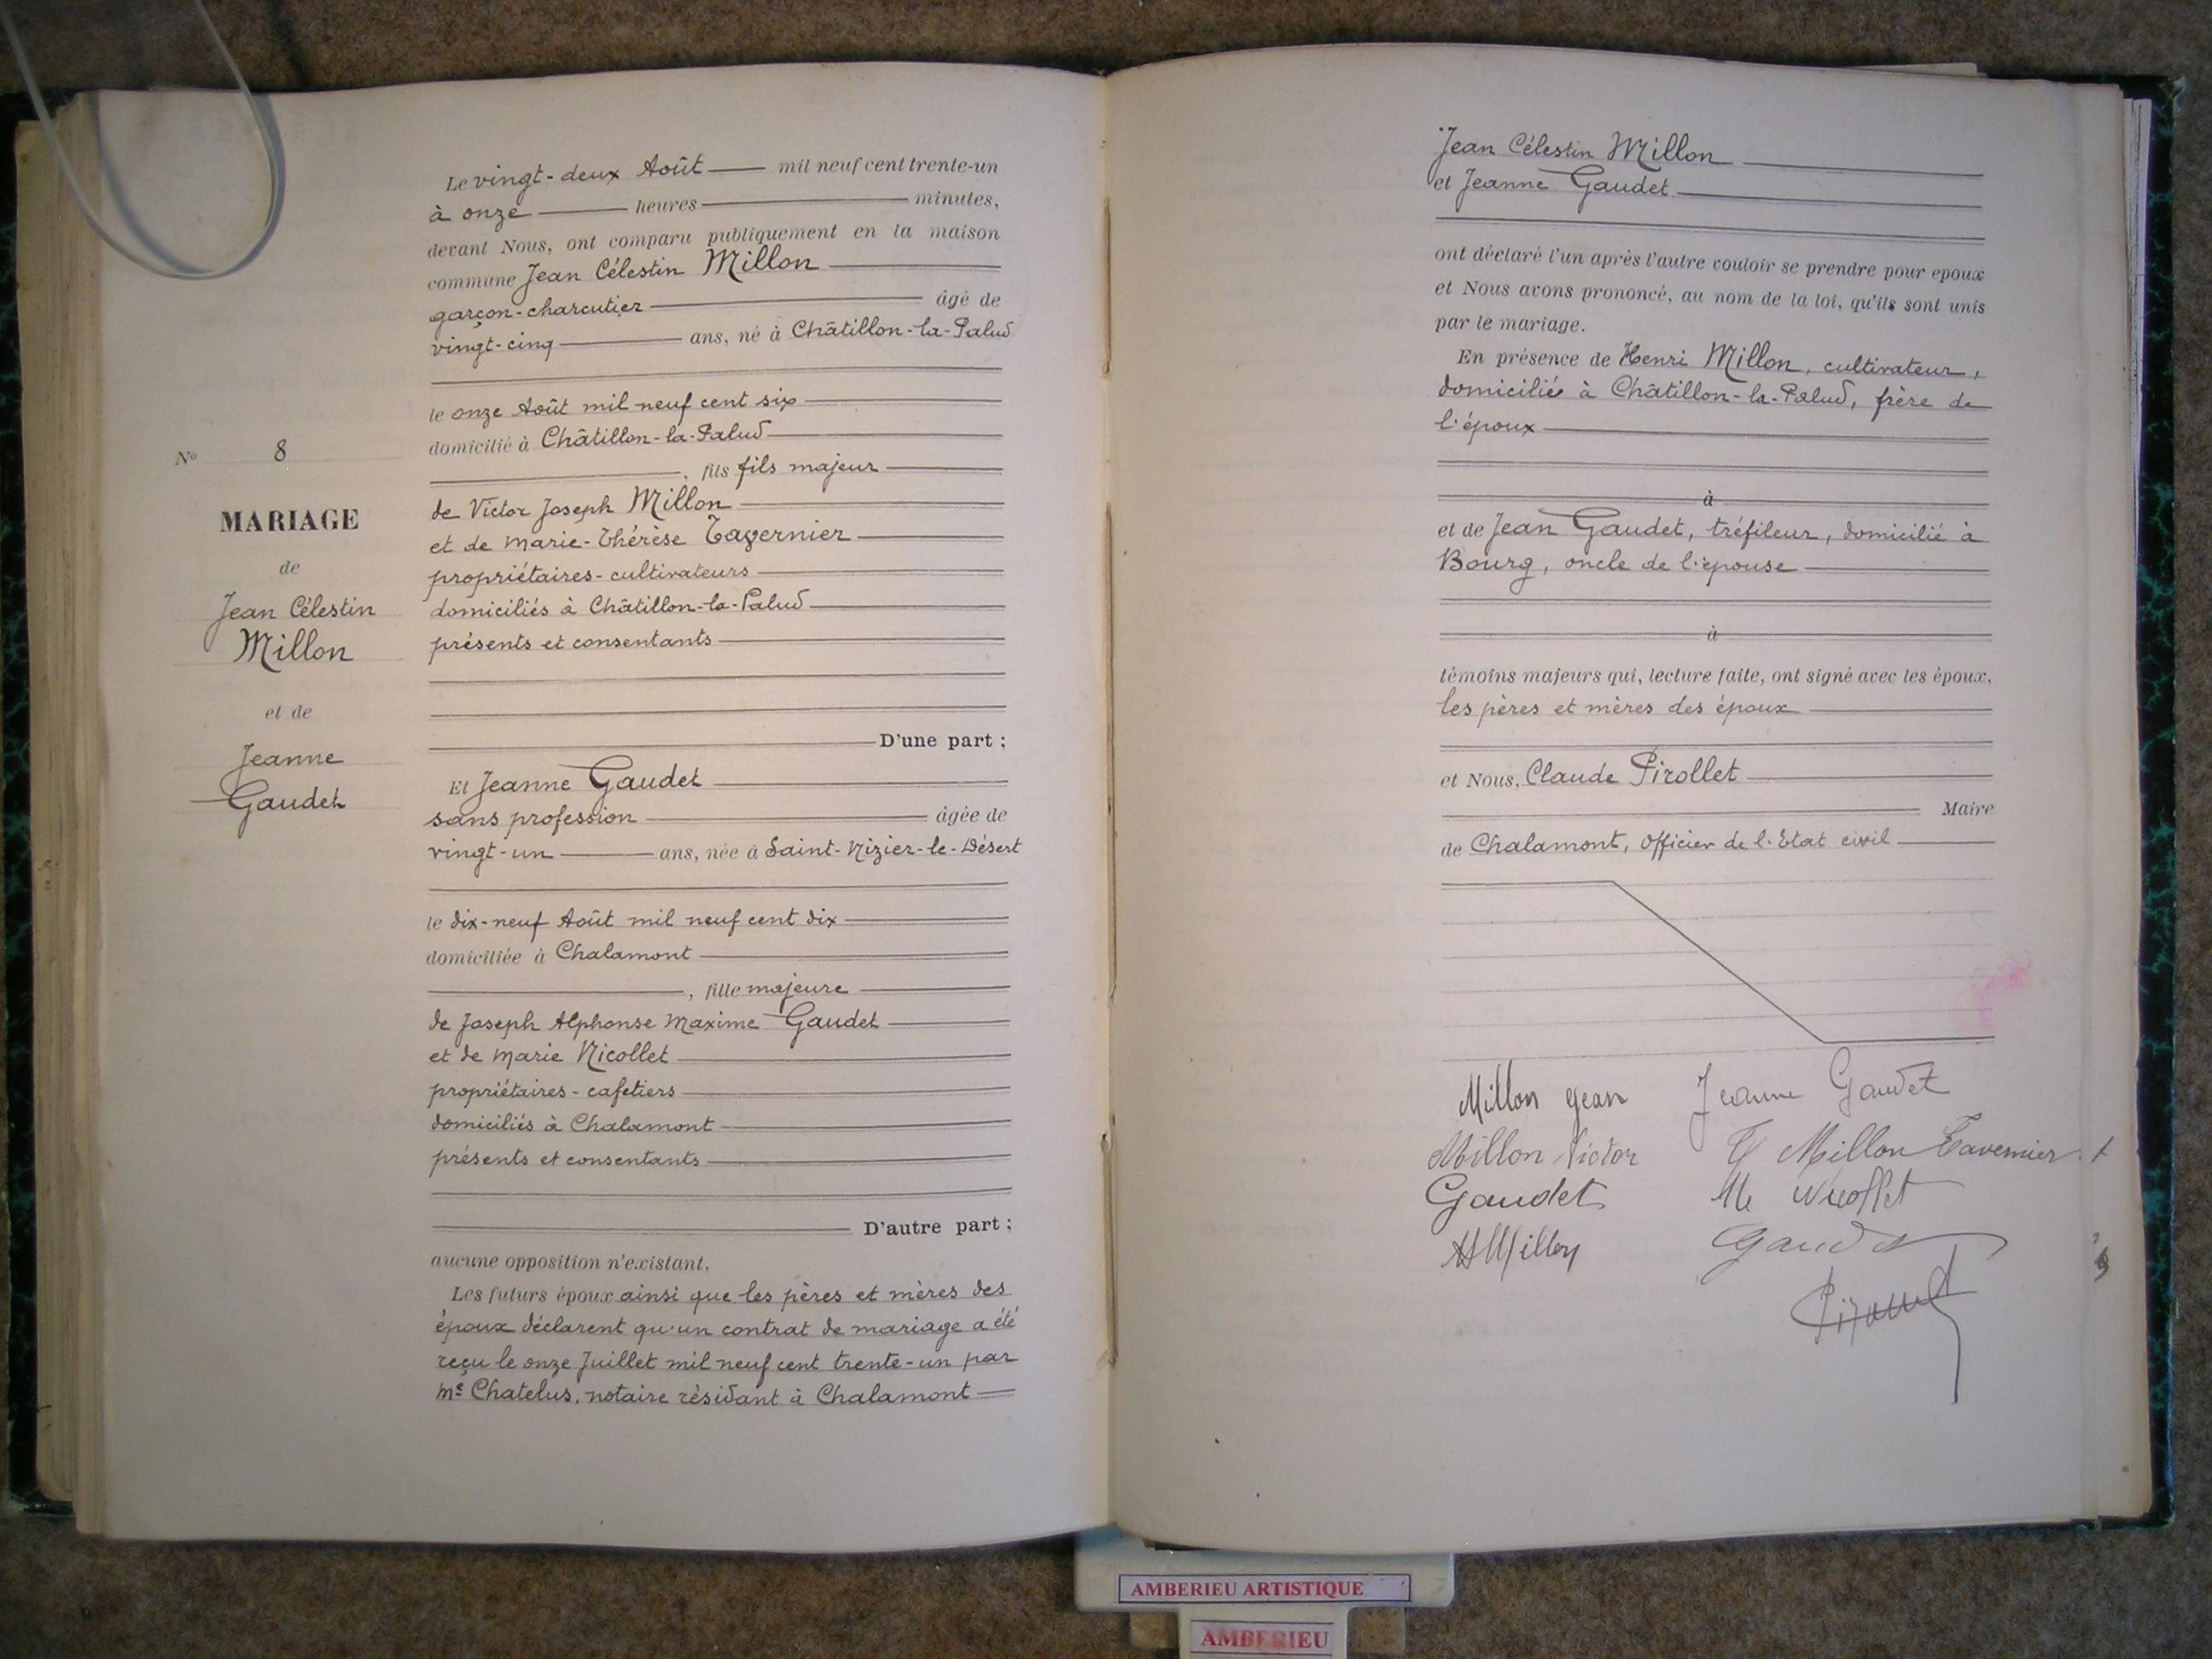 Le vingt-deux Août mil neuf cent trente-un
à onze heures minutes,
devant Nous, ont comparu publiquement en la maison
commune Jean Célestin Millon
garçon-charcutier âgé de
vingt-cinq ans, né à Châtillon-la-Palud
le onze Août mil neuf cent six
domicilié à Châtillon-la-Palud
, fils fils majeur
de Victor Joseph Millon
et de Marie-Thérèse Tavernier
propriétaires-cultivateurs
domiciliés à Châtillon-la-Palud
présents et consentants
D'une part ;
Et Jeanne Gaudet
sans profession âgée de
vingt-un ans, née à Saint-Nizier-le-Désert
le dix-neuf Août mil neuf cent dix
domiciliée à Chalamont
, fille majeure
de Joseph Alphonse Maxime Gaudet
et de Marie Nicollet
propriétaires-cafetiers
domiciliés à Chalamont
présents et consentants
D'autre part ;
aucune opposition n'existant,
Les futurs époux ainsi que les pères et mères des
époux déclarent qu'un contrat de mariage a été
reçu le onze Juillet mil neuf cent trente-un par
Me Chatelus, notaire résidant à Chalamont
No 8
MARIAGE
de
Jean Célestin
Millon
et de
Jeanne
Gaudet
Jean Célestin Millon
et Jeanne Gaudet
ont déclaré l'un après l'autre vouloir se prendre pour epoux
et Nous avons prononcé, au nom de la loi, qu'ils sont unis
par le mariage.
En présence de Henri Millon, cultivateur,
domicilié à Châtillon-la-Palud, frère de
l'époux
à
et de Jean Gaudet, tréfileur, domicilié à
Bourg, oncle de l'épouse
à
témoins majeurs qui, lecture faite, ont signé avec les époux,
les pères et mères des époux
et Nous, Claude Pirollet
Maire
de Chalamont, Officier de l'Etat civil
Millon Jean Jeanne Gaudet
Millon Victor Millon Tavernier
Gaudet M Nicollet
H Millon Gaudet
AMBERIEU ARTISTIQUE
AMBERIEU